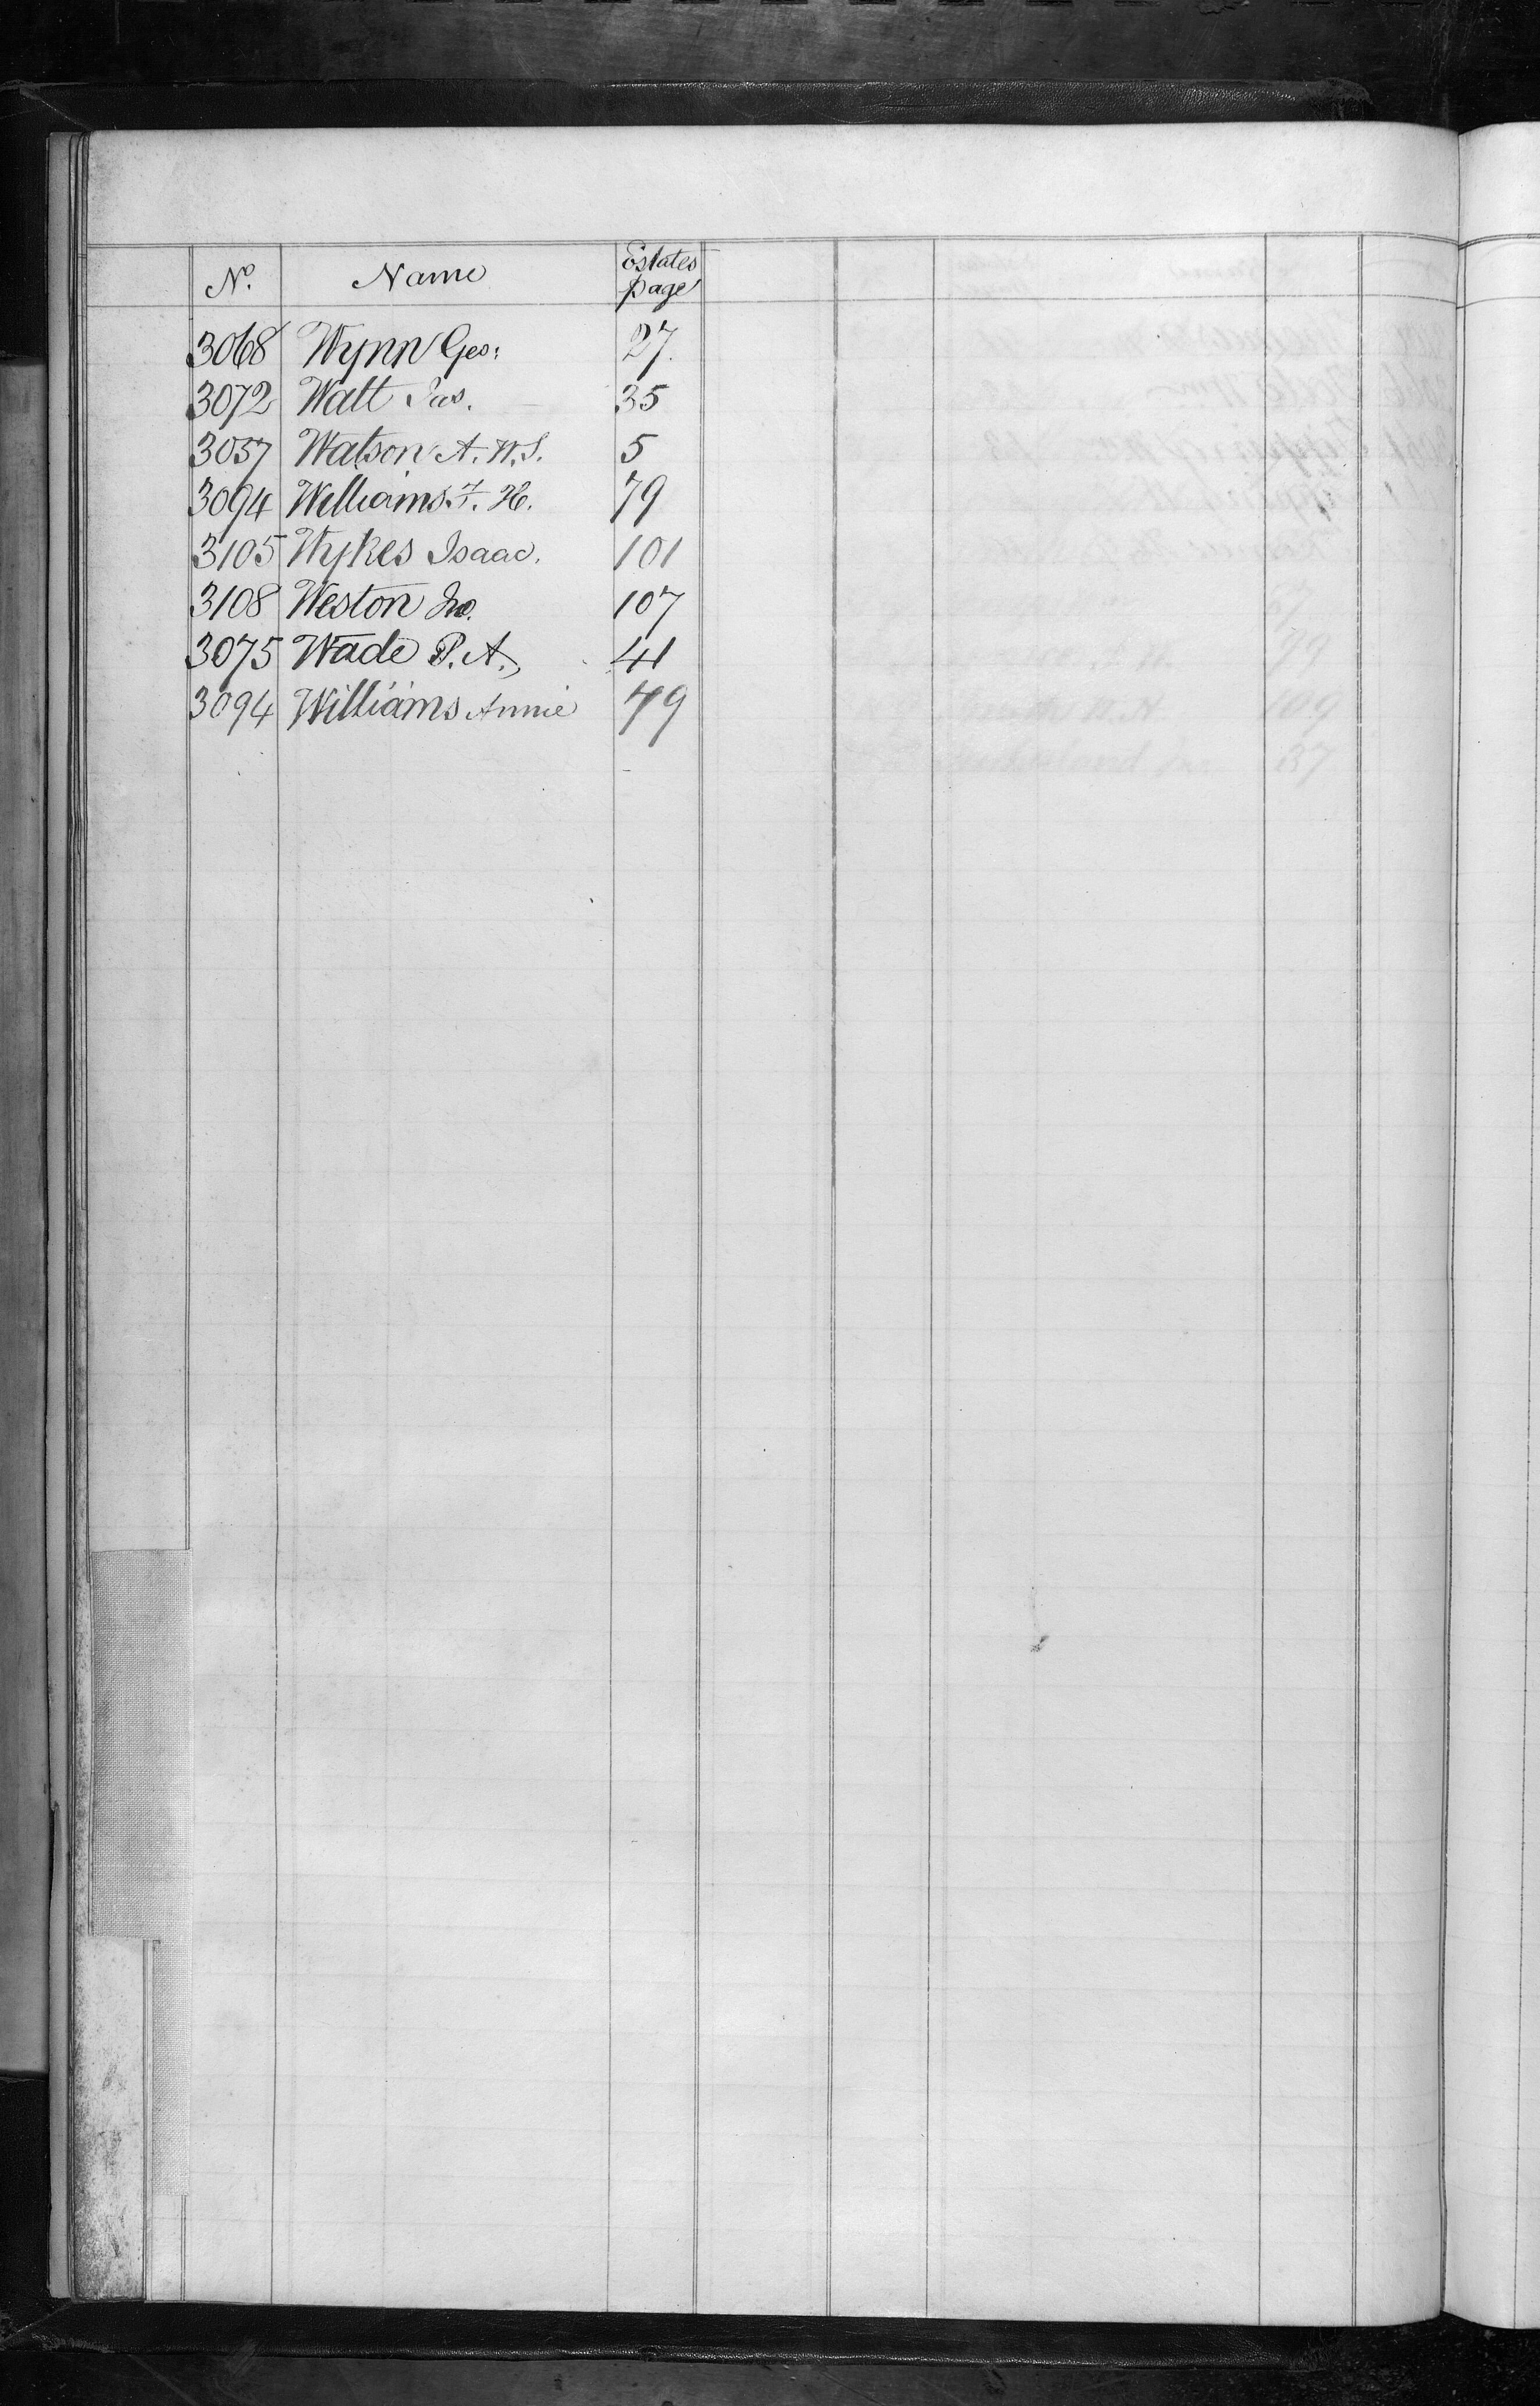 No. Name Estates page
3068 Wynn Geo: 27.
3072 Watt Jas. 35
3057 Watson A. W. S. 5
3094 Williams F. H. 79
3105 Wykes Isaac. 101
3108 Weston Jno. 107
3075 Wade P. A. 41
3094 Williams Annie 79